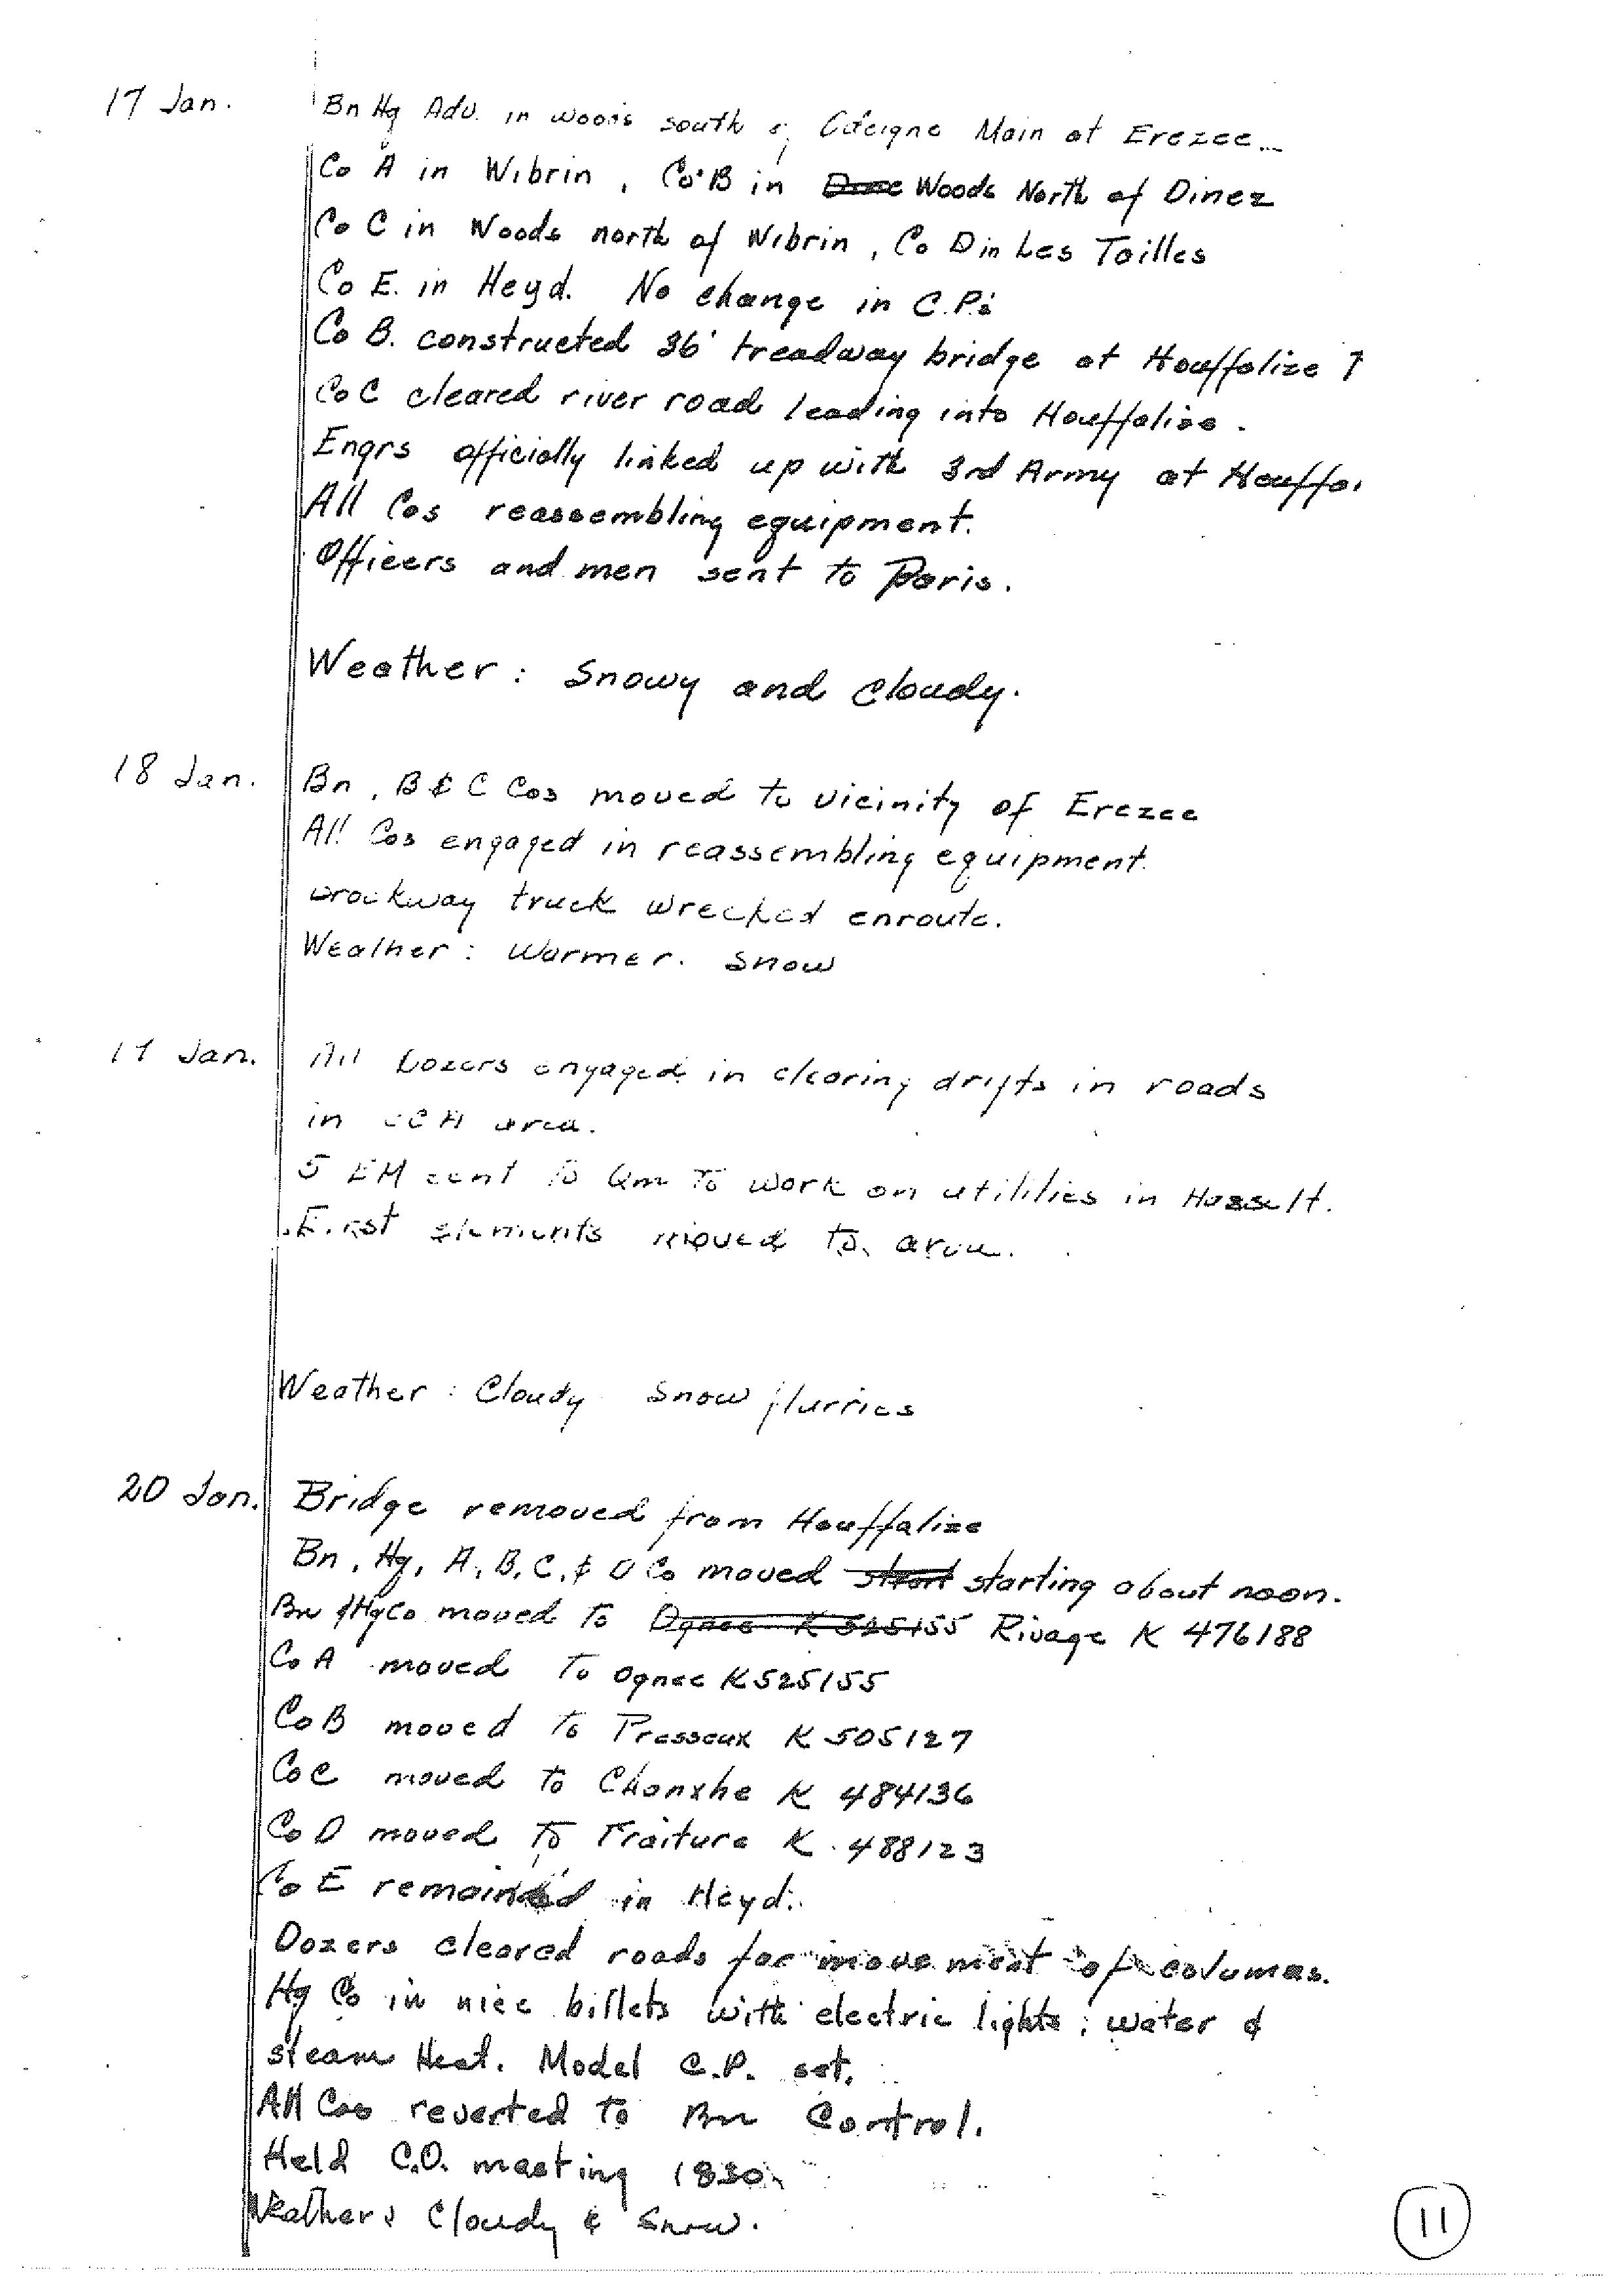 17 Jan. Bn Hq Adv. in woods south of Main at Erezee
Co A in Wibrin, Co B in Woods North of Dinez
Co C in Woods north of Wibrin, Co D in Les Tailles
Co E. in Heyd. No change in C.P.s
Co B. constructed 36' treadway bridge at Houffalize
Co C cleared river road leading into Houffalize.
Engrs officially linked up with 3rd Army at Houffa
All Cos reassembling equipment.
Officers and men sent to Paris.
Weather: Snowy and cloudy.
18 Jan. Bn, B & C Cos moved to vicinity of Erezee
All Cos engaged in reassembling equipment.
Brockway truck wrecked enroute.
Weather: Warmer. Snow
Jan. All Dozers engaged in clearing drifts in roads
in area.
5 EM sent to Qm to work on utilities in Hasselt.
First elements moved to area.
Weather: Cloudy Snow flurries
20 Jan. Bridge removed from Houffalize
Bn, Hq, A, B, C, & D Co moved start starting about noon.
Bn & Hq Co moved to Ognee K 525155 Rivage K 476188
Co A moved to Ognee K525155
Co B moved to Presseux K 505127
Co C moved to Chanxhe K 484136
Co D moved to Fraiture K. 488123
Co E remained in Heyd.
Dozers cleared roads for movement of columns.
Hq Co in nice billets with electric lights, water &
steam Heat. Model C.P. set.
All Cos reverted to Bn Control.
Held C.O. meeting 1830
Weather: Cloudy & Snow.
11